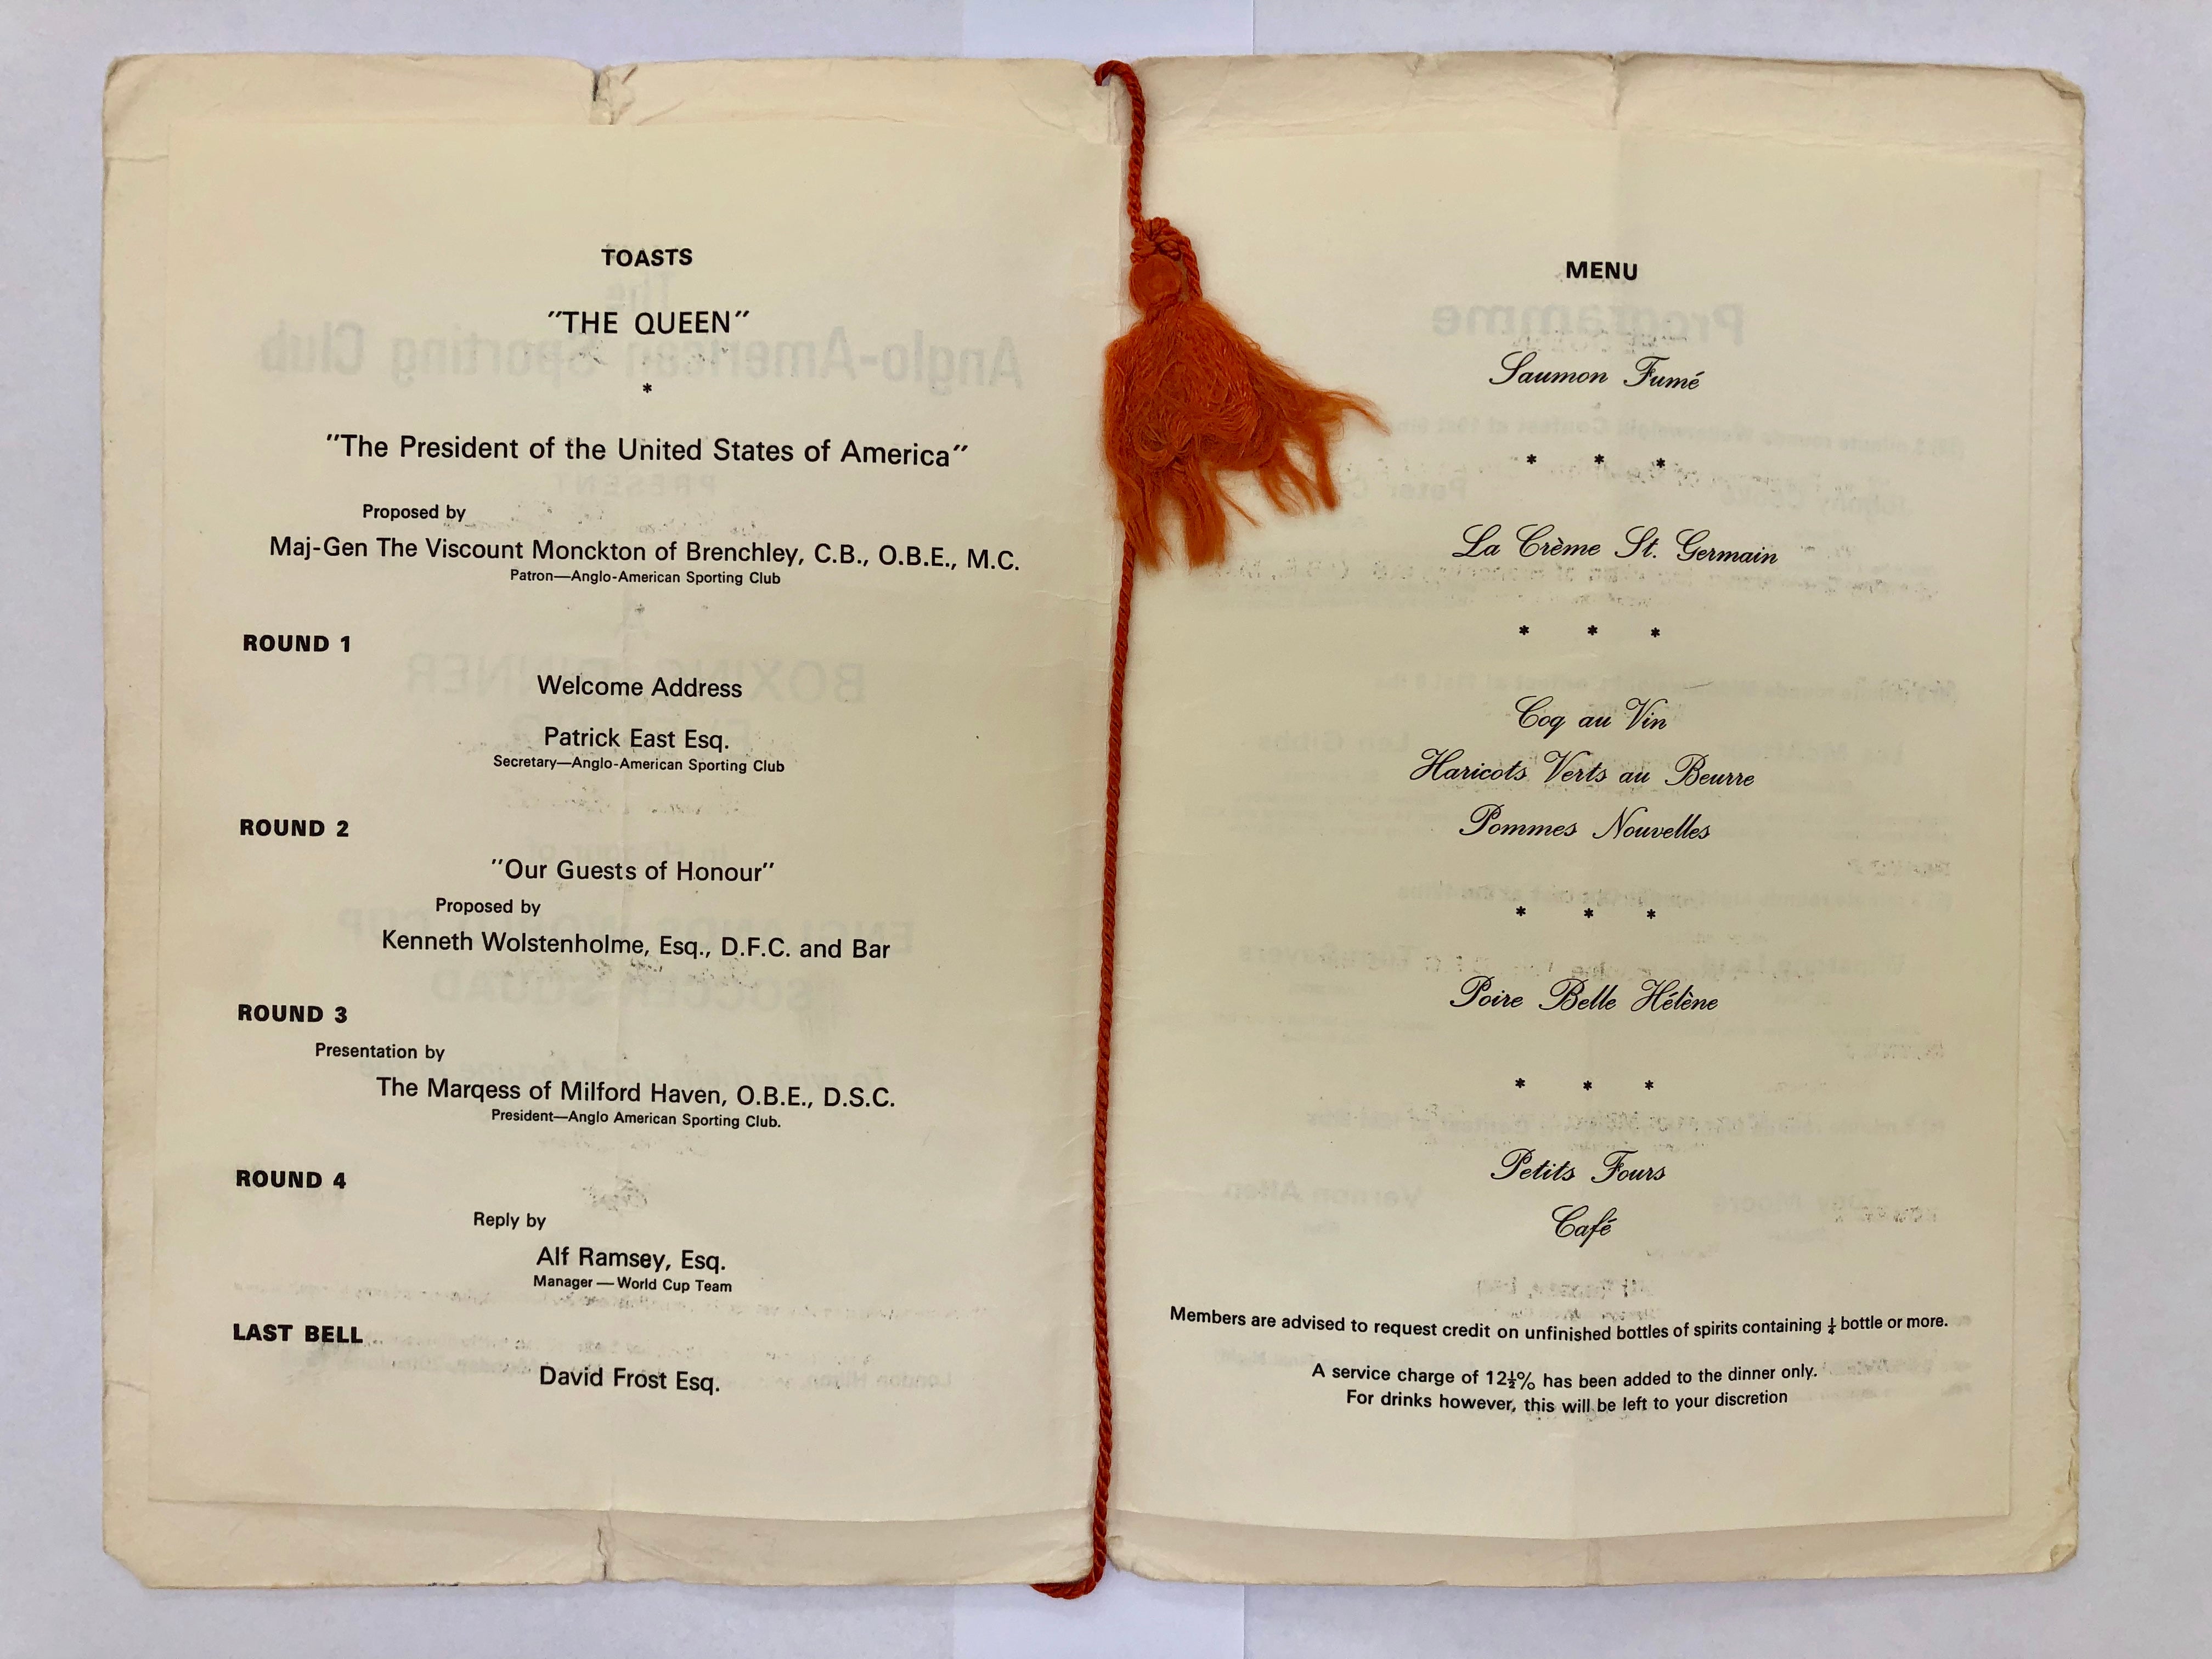 TOASTS
"THE QUEEN"
*
"The President of the United States of America"
Proposed by
Maj-Gen The Viscount Monckton of Brenchley, C.B., O.B.E., M.C.
Patron—Anglo-American Sporting Club
ROUND 1
Welcome Address
Patrick East Esq.
Secretary—Anglo-American Sporting Club
ROUND 2
"Our Guests of Honour"
Proposed by
Kenneth Wolstenholme, Esq., D.F.C. and Bar
ROUND 3
Presentation by
The Marqess of Milford Haven, O.B.E., D.S.C.
President—Anglo American Sporting Club.
ROUND 4
Reply by
Alf Ramsey, Esq.
Manager — World Cup Team
LAST BELL
David Frost Esq.
MENU
Saumon Fumé
* * *
La Crème St. Germain
* * *
Coq au Vin
Haricots Verts au Beurre
Pommes Nouvelles
* * *
Poire Belle Hélène
* * *
Petits Fours
Café
Members are advised to request credit on unfinished bottles of spirits containing ¼ bottle or more.
A service charge of 12½% has been added to the dinner only.
For drinks however, this will be left to your discretion